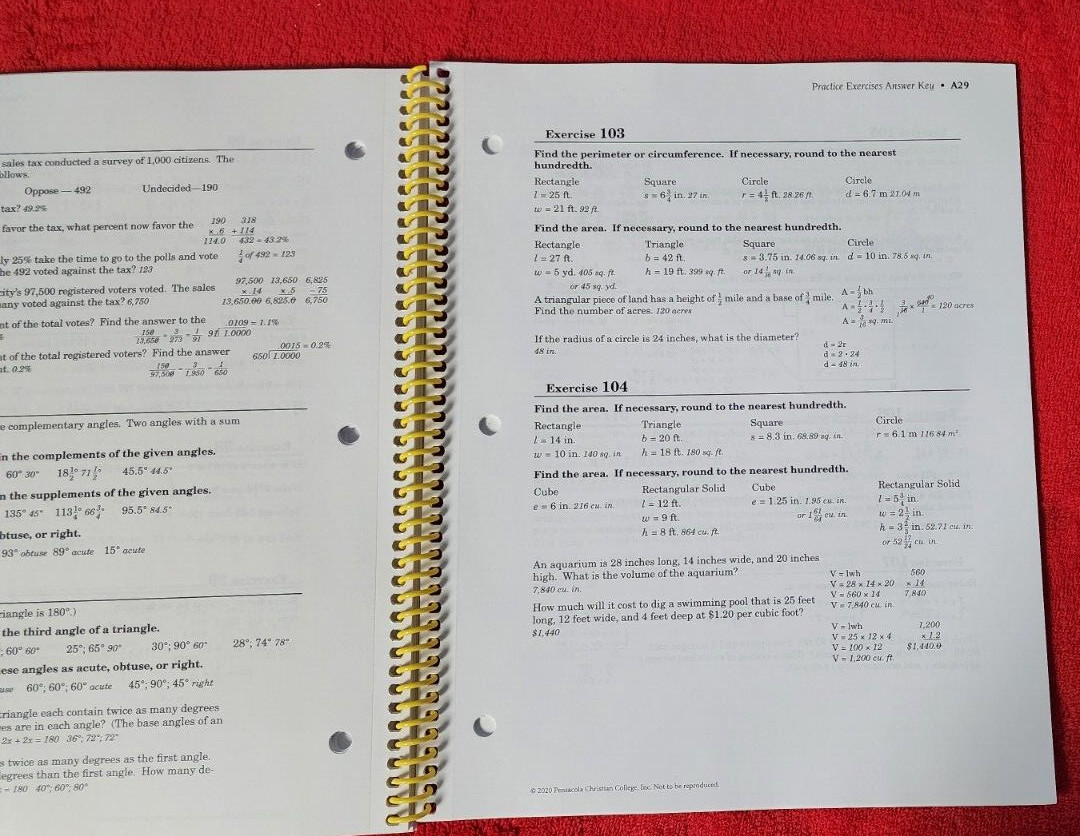 sales tax conducted a survey of 1,000 citizens. The
ollows.
Oppose — 492 Undecided—190
tax? 49.2%
favor the tax, what percent now favor the
190 318
x .6 + 114
114.0 432 = 43.2%
ly 25% take the time to go to the polls and vote
he 492 voted against the tax? 123
1/4 of 492 = 123
city's 97,500 registered voters voted. The sales
any voted against the tax? 6,750
97,500 13,650 6,825
x .14 x .5 - 75
13,650.00 6,825.0 6,750
nt of the total votes? Find the answer to the
.0109 = 1.1%
150/13,650 = 3/273 = 1/91 91 1.0000
nt of the total registered voters? Find the answer
nt. 0.2%
.0015 = 0.2%
650 1.0000
150/97,500 = 3/1,950 = 1/650
e complementary angles. Two angles with a sum
n the complements of the given angles.
60° 30° 18 1/2° 71 1/2° 45.5° 44.5°
n the supplements of the given angles.
135° 45° 113 1/4° 66 3/4° 95.5° 84.5°
btuse, or right.
93° obtuse 89° acute 15° acute
riangle is 180°.)
the third angle of a triangle.
; 60° 60° 25°; 65° 90° 30°; 90° 60° 28°; 74° 78°
ese angles as acute, obtuse, or right.
use 60°; 60°; 60° acute 45°; 90°; 45° right
triangle each contain twice as many degrees
es are in each angle? (The base angles of an
2x + 2x = 180 36°; 72°; 72°
s twice as many degrees as the first angle.
egrees than the first angle. How many de-
= 180 40°; 60°; 80°
Practice Exercises Answer Key • A29
Exercise 103
Find the perimeter or circumference. If necessary, round to the nearest
hundredth.
Rectangle Square Circle Circle
l = 25 ft. s = 6 3/4 in. 27 in. r = 4 1/2 ft. 28.26 ft. d = 6.7 m 21.04 m
w = 21 ft. 92 ft.
Find the area. If necessary, round to the nearest hundredth.
Rectangle Triangle Square Circle
l = 27 ft. b = 42 ft. s = 3.75 in. 14.06 sq. in. d = 10 in. 78.5 sq. in.
w = 5 yd. 405 sq. ft. h = 19 ft. 399 sq. ft. or 14 1/16 sq. in.
or 45 sq. yd.
A triangular piece of land has a height of 1/2 mile and a base of 3/4 mile.
Find the number of acres. 120 acres
A = 1/2 bh
A = 1/2 · 3/4 · 1/2 3/16 × 640/1 = 120 acres
A = 3/16 sq. mi.
If the radius of a circle is 24 inches, what is the diameter?
48 in.
d = 2r
d = 2 · 24
d = 48 in.
Exercise 104
Find the area. If necessary, round to the nearest hundredth.
Rectangle Triangle Square Circle
l = 14 in. b = 20 ft. s = 8.3 in. 68.89 sq. in. r = 6.1 m 116.84 m²
w = 10 in. 140 sq. in. h = 18 ft. 180 sq. ft.
Find the area. If necessary, round to the nearest hundredth.
Cube Rectangular Solid Cube Rectangular Solid
e = 6 in. 216 cu. in. l = 12 ft. e = 1.25 in. 1.95 cu. in. l = 5 3/4 in.
w = 9 ft. or 1 61/64 cu. in. w = 2 1/2 in.
h = 8 ft. 864 cu. ft. h = 3 2/3 in. 52.71 cu. in.
or 52 17/24 cu. in.
An aquarium is 28 inches long, 14 inches wide, and 20 inches
high. What is the volume of the aquarium?
7,840 cu. in.
V = lwh 560
V = 28 × 14 × 20 × 14
V = 560 × 14 7,840
V = 7,840 cu. in.
How much will it cost to dig a swimming pool that is 25 feet
long, 12 feet wide, and 4 feet deep at $1.20 per cubic foot?
$1,440
V = lwh 1,200
V = 25 × 12 × 4 × 1.2
V = 100 × 12 $1,440.0
V = 1,200 cu. ft.
© 2020 Pensacola Christian College, Inc. Not to be reproduced.